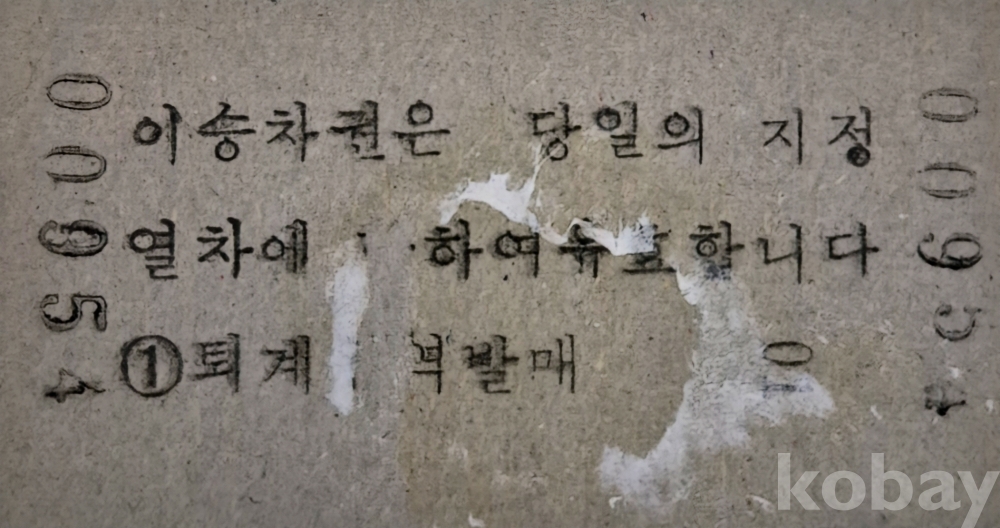 00954
이승차권은 당일의 지정
열차에 하여유효합니다
①퇴계 부발매
01
00954
kobay